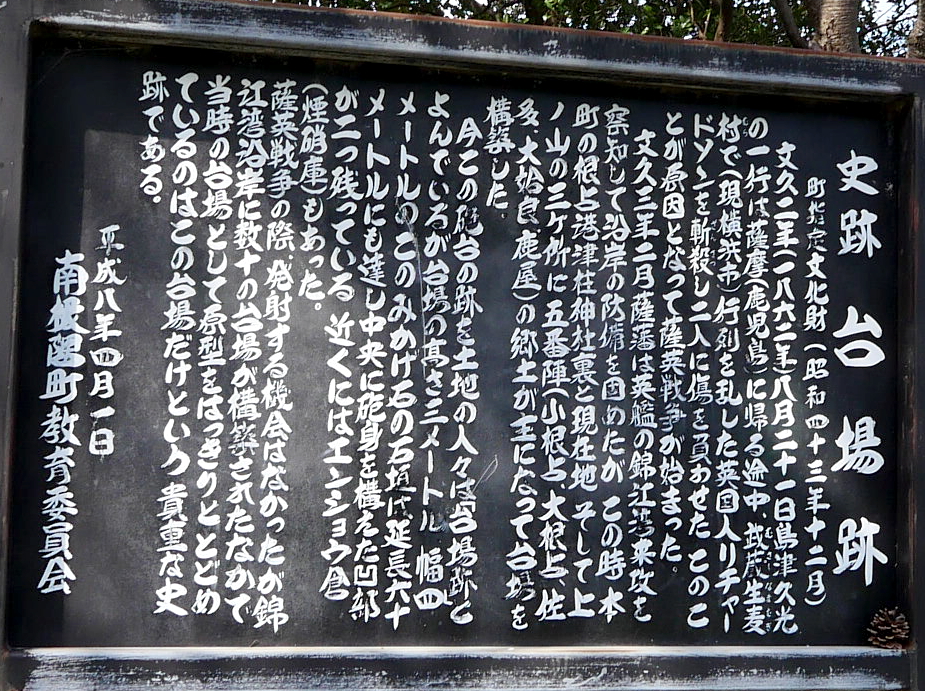 史跡 台場跡
町指定文化財(昭和四十三年十二月)
文久二年(一八六二年)八月二十一日島津久光
の一行は薩摩(鹿児島)に帰る途中、武蔵生麦
村で(現横浜市)行列を乱した英国人リチャー
ドソンを斬殺し二人に傷を負わせた このこ
とが原因となって薩英戦争が始まった。
文久三年二月薩藩は英艦の錦江湾来攻を
察知して沿岸の防備を固めたが この時本
町の根占港津柱神社裏と現在地 そして上
ノ山の三ヶ所に五番陣(小根占、大根占、佐
多、大姶良、鹿屋)の郷士が主になって台場を
構築した。
今この砲台の跡を土地の人々は台場跡と
よんでいるが台場の高さ三メートル 幅四
メートルのこのみかげ石の石垣は延長六十
メートルにも達し中央に砲身を構えた凹部
が二つ残っている 近くにはエンショウ倉
(煙硝庫)もあった。
薩英戦争の際、発射する機会はなかったが錦
江湾沿岸に数十の台場が構築されたなかで
当時の台場として原型をはっきりととどめ
ているのはこの台場だけという 貴重な史
跡である。
平成八年四月一日
南根占町教育委員会